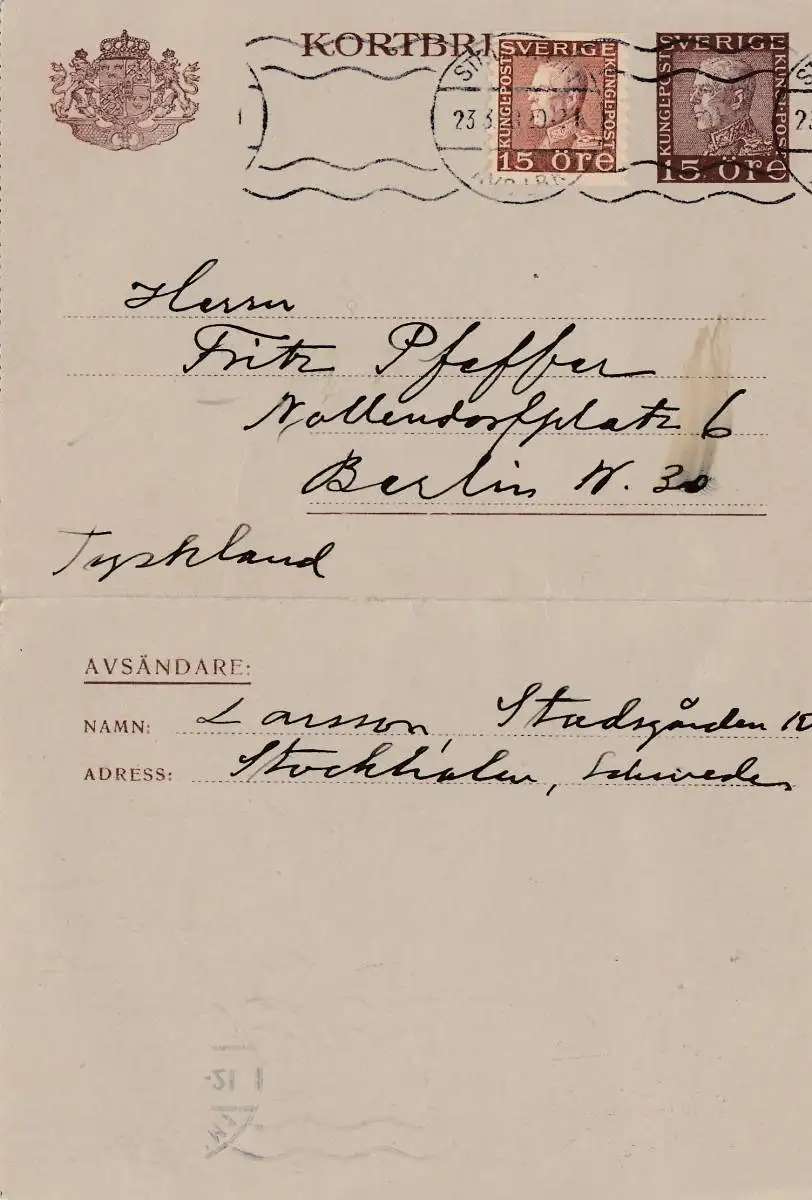 KORTBRE
SVERIGE
KUNGL·POST
KUNGL·POST
15 öre
SVERIGE
KUNGL·POST
KUNGL·POST
15 öre
23 3
Herrn
Fritz Pfeffer
Nollendorfplatz 6
Berlin W. 30
Tyskland
AVSÄNDARE:
NAMN: Larsson, Stadsgården
ADRESS: Stockholm, Schweden
-21